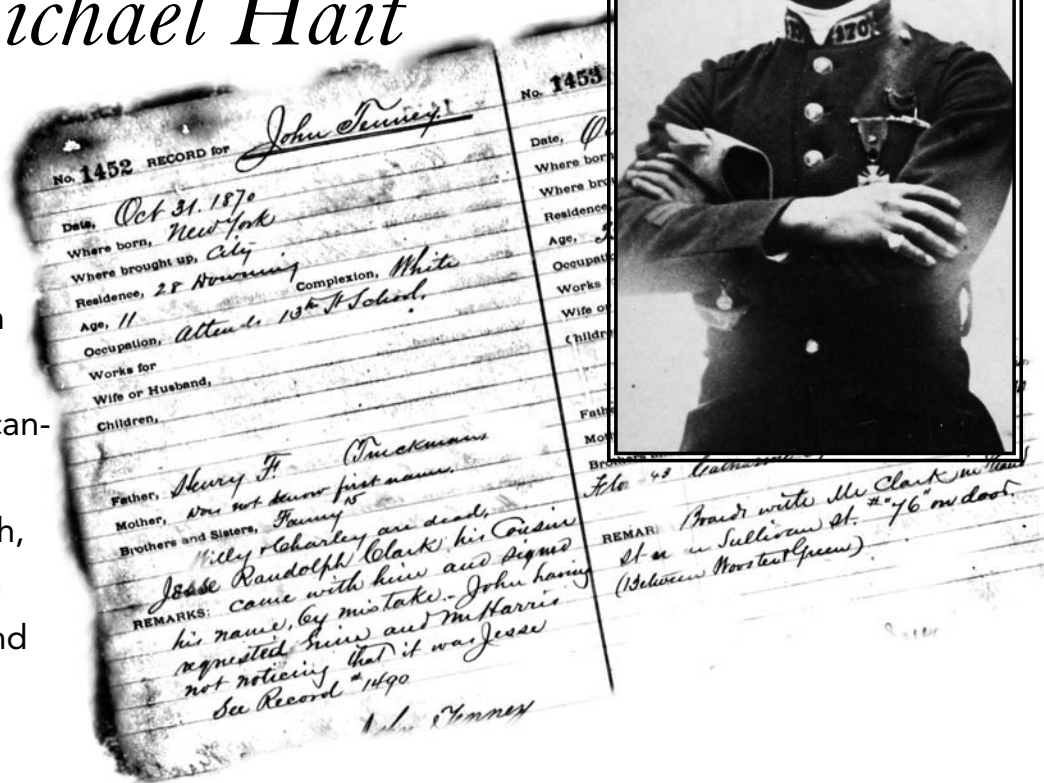 ichael Hait
No. 1452 RECORD for John Tenney
Date, Oct 31. 1870
Where born, New York
Where brought up, City
Residence, 28 Downing Complexion, White
Age, 11
Occupation, Attends 13th St School.
Works for
Wife or Husband,
Children,
Father, Henry F. (Truckman
Mother, Does not know first name.
Brothers and Sisters, Fanny 15
Willy & Charley are dead,
Jesse Randolph Clark his Cousin
REMARKS: came with him and signed
his name, by mistake - John having
requested him and Mr Harris
not noticing that it was Jesse
See Record #1490
John Tenney
No. 1453
Date,
Where born
Where bro
Residence
Age,
Occupati
Works
Wife or
Childr
Fathe
Moth
Brothers
43
REMAR Boards with Mr Clark in
St Sullivan St. #"76" on door.
(Between Wooster & Green)
can-
h,
nd
170